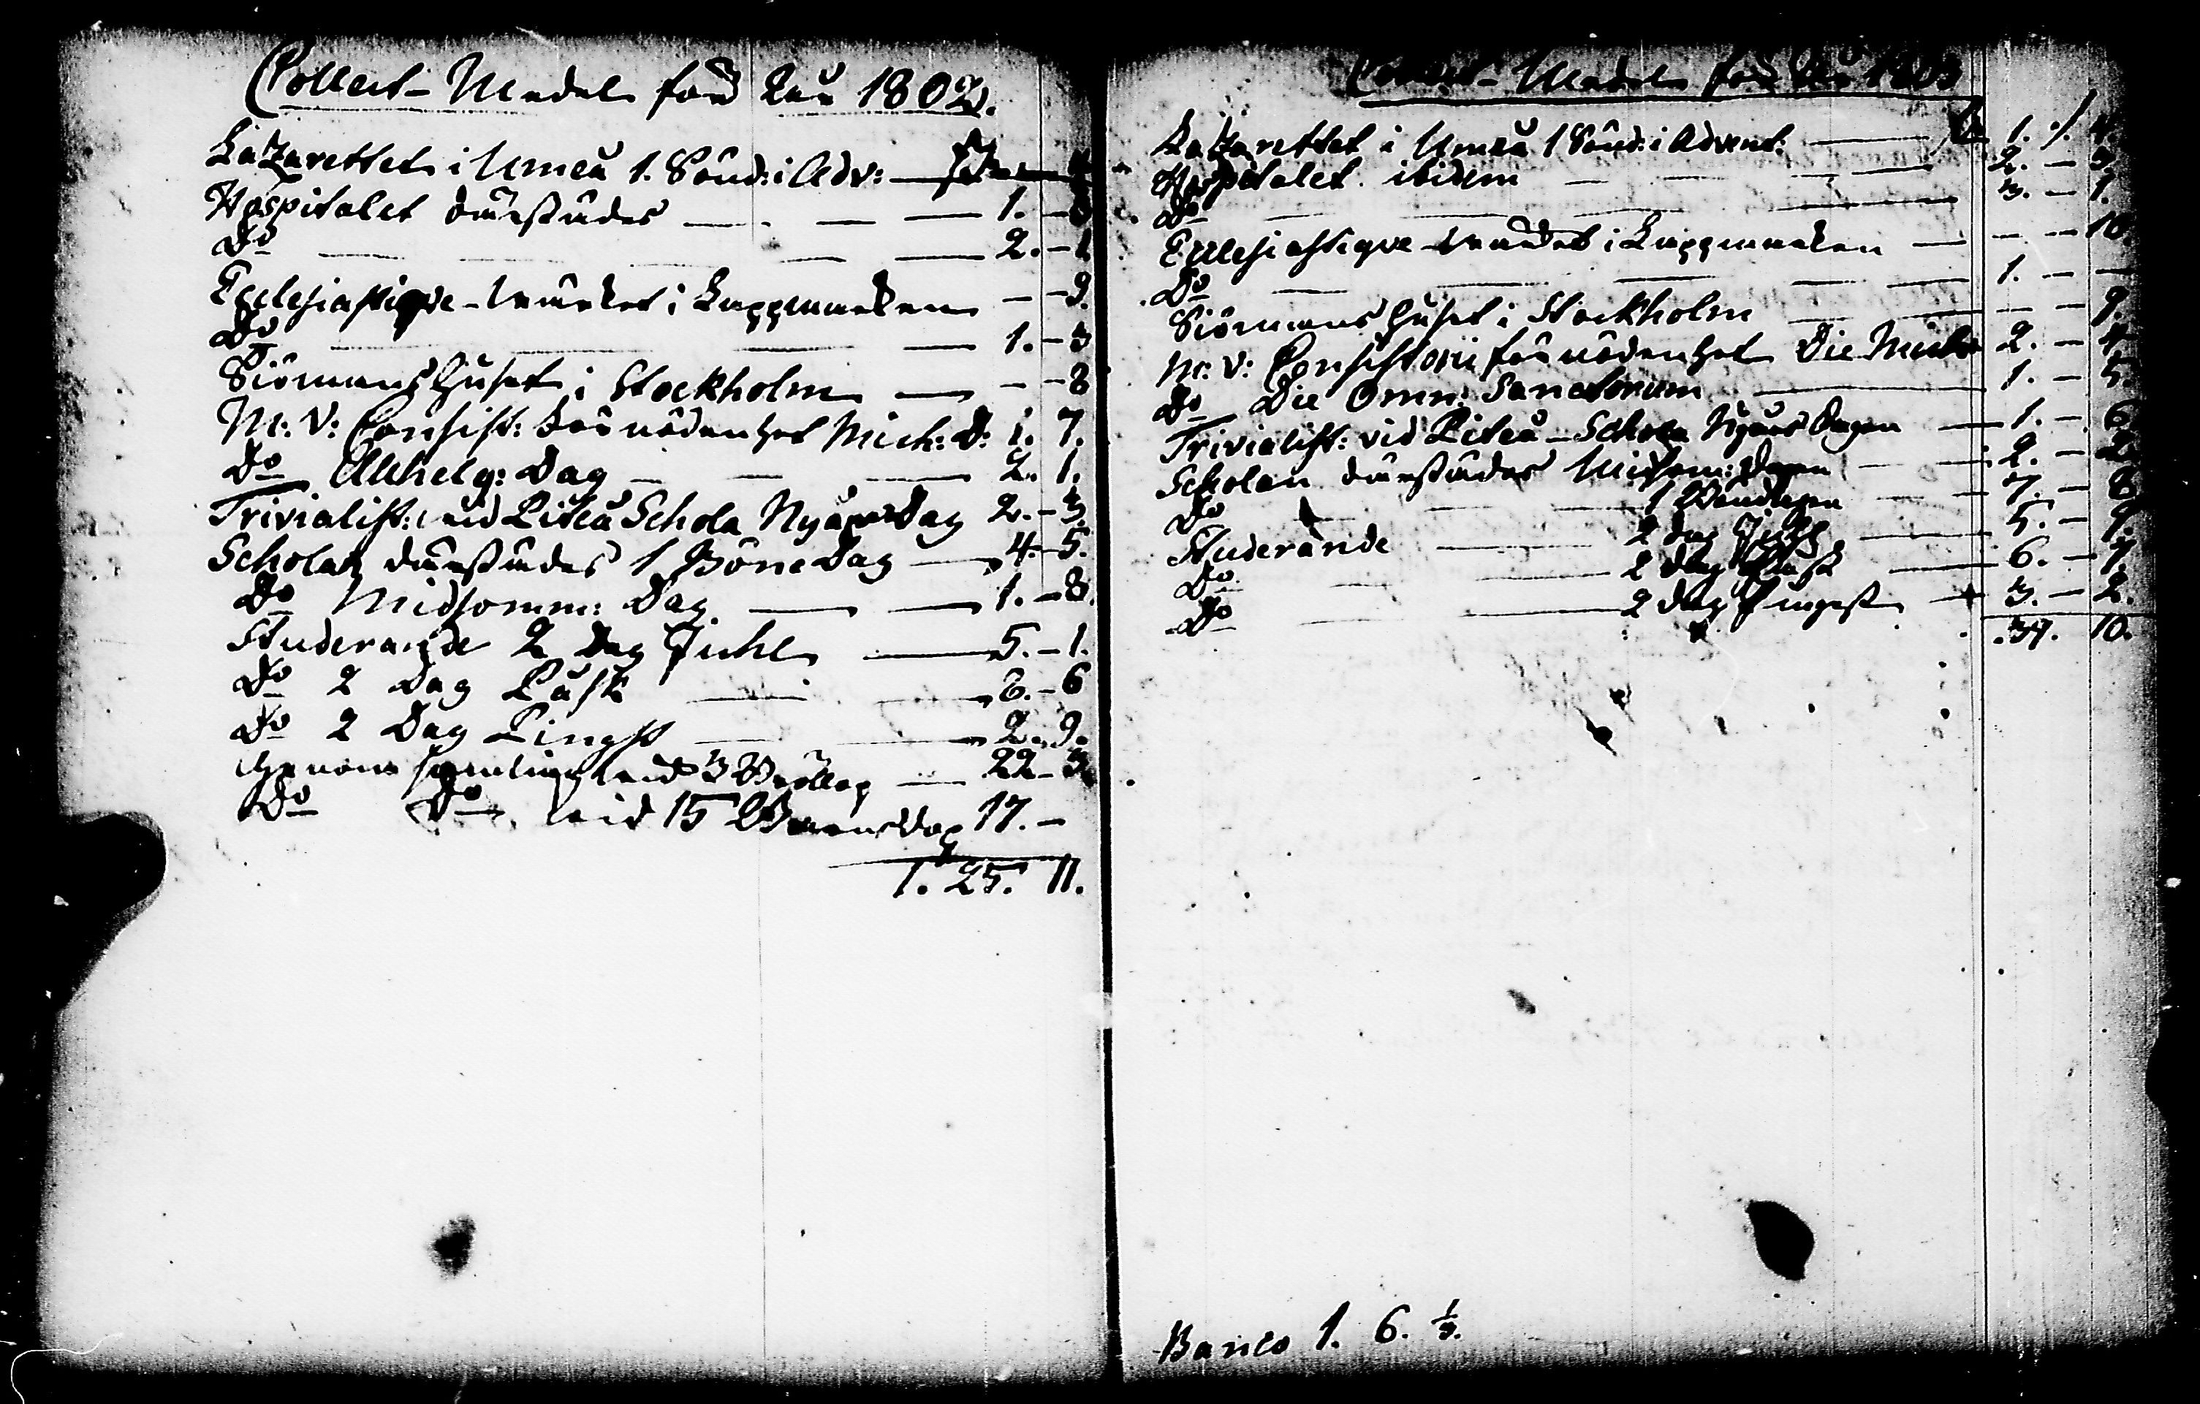 Collect-Medel för år 1802.
Lazarettet i Umeå 1. Sönd: i Adv:
Hospitalet därstädes — — — 1. -
Do — — — 2. - 1
Ecclesiastique-wärket i Lappmarken — - 9.
Do — — — 1. - 3
Siömans huset i Stockholm — - - 8
M: V: Consist: förnödenhet Mich: D: 1. 7.
Do Allhelg: Dag — — — 2. 1.
Trivialist: vid Piteå Schola Nyårs Dag 2. - 3.
Scholan därstädes 1 Böne Dag — 4. - 5.
Do Midsomm: Dag — — 1. - 8.
Studerande 2 Dag Juhl — 5. - 1.
Do 2 Dag Påsk — — 6. - 6
Do 2 Dag Pingst — — 2. - 9.
Genom samling vid 3 Bröllop — 22 - 3
Do Do vid 15 17. -
1. 25. 11.
Collect-Medel för år 1803
Lazarettet i Umeå 1 Sönd: i Advent: — 1. 4.
Hospitalet ibidem — — — 2. - 3.
Do — — — 3. - 1.
Ecclesiastique-wärket i Lappmarken — - - 10.
Do — — — 1. - -
Siömans huset i Stockholm — - - 9.
M: V: Consistorii förnödenhet Die Mich 2. - 4.
Do Die Omn: Sanctorum — 1. - 5.
Trivialist: vid Piteå-Schola Nyårs Dagen — 1. - 6.
Scholan därstädes Midsom: Dagen — 2. - 2.
Do — 1 Böndagen — 7. - 8.
Studerande — 2 dag Juhl — 5. - 9.
Do — 2 dag Påsk — 6. - 7.
Do — 2 dag Pingst — 3. - 2.
37. 10.
Banco 1. 6.